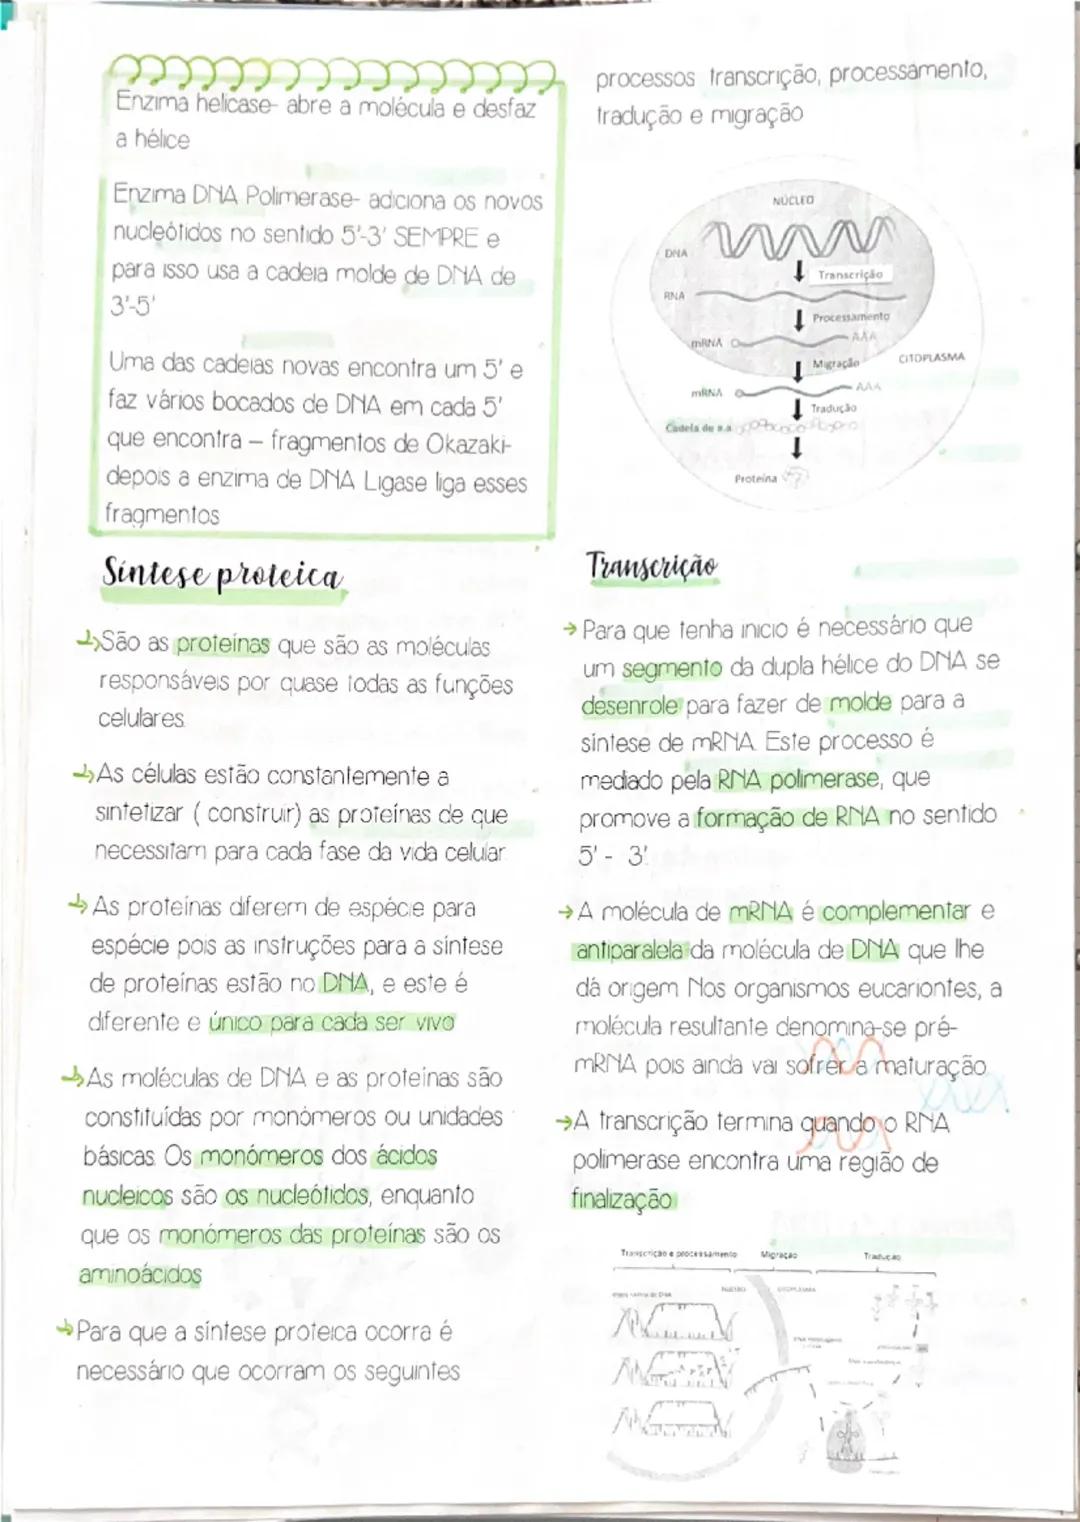 Enzima helicase- abre a molécula e desfaz
a hélice
Enzima DNA Polimerase- adiciona os novos
nucleótidos no sentido 5'-3' SEMPRE e
para isso usa a cadeia molde de DNA de
3'-5'
Uma das cadeias novas encontra um 5' e
faz vários bocados de DNA em cada 5'
que encontra – fragmentos de Okazaki-
depois a enzima de DNA Ligase liga esses
fragmentos
Síntese proteica
São as proteínas que são as moléculas
responsáveis por quase todas as funções
celulares.
As células estão constantemente a
sintetizar ( construir) as proteínas de que
necessitam para cada fase da vida celular.
As proteínas diferem de espécie para
espécie pois as instruções para a síntese
de proteínas estão no DNA, e este é
diferente e único para cada ser vivo
As moléculas de DNA e as proteínas são
constituídas por monómeros ou unidades
básicas. Os monómeros dos ácidos
nucleicos são os nucleótidos, enquanto
que os monómeros das proteínas são os
aminoácidos
Para que a síntese proteica ocorra é
necessário que ocorram os seguintes
processos transcrição, processamento,
tradução e migração
NÚCLEO
DNA
Transcrição
RNA
Processamento
mRNA
AAA
Migração
CITOPLASMA
mRNA
AAA
Tradução
Cadeia de a.a
Proteína
Transcrição
→ Para que tenha inicio é necessário que
um segmento da dupla hélice do DNA se
desenrole para fazer de molde para a
síntese de mRNA. Este processo é
mediado pela RNA polimerase, que
promove a formação de RNA no sentido
5' - 3'.
→ A molécula de mRNA é complementar e
antiparalela da molécula de DNA que lhe
dá origem. Nos organismos eucariontes, a
molécula resultante denomina-se pré-
mRNA pois ainda vai sofrer a maturação
→ A transcrição termina quando o RNA
polimerase encontra uma região de
finalização
Transcrição e processamento
Migração
Tradução
NÚCLEO
CITOPLASMA